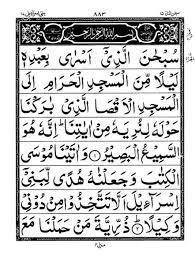 ٨٨٣
بِسْمِ اللّٰهِ الرَّحْمٰنِ الرَّحِیْمِ
سُبْحٰنَ الَّذِیْۤ اَسْرٰی بِعَبْدِهٖ
لَیْلًا مِّنَ الْمَسْجِدِ الْحَرَامِ اِلَی
الْمَسْجِدِ الْاَقْصَا الَّذِیْ بٰرَكْنَا
حَوْلَهٗ لِنُرِیَهٗ مِنْ اٰیٰتِنَاؕ اِنَّهٗ هُوَ
السَّمِیْعُ الْبَصِیْرُ ۝۱ وَاٰتَیْنَا مُوْسَی
الْكِتٰبَ وَجَعَلْنٰهُ هُدًی لِّبَنِیْۤ
اِسْرَآءِیْلَ اَلَّا تَتَّخِذُوْا مِنْ دُوْنِیْ
وَكِیْلًا ۝۲ ذُرِّیَّةَ مَنْ حَمَلْنَا مَعَ